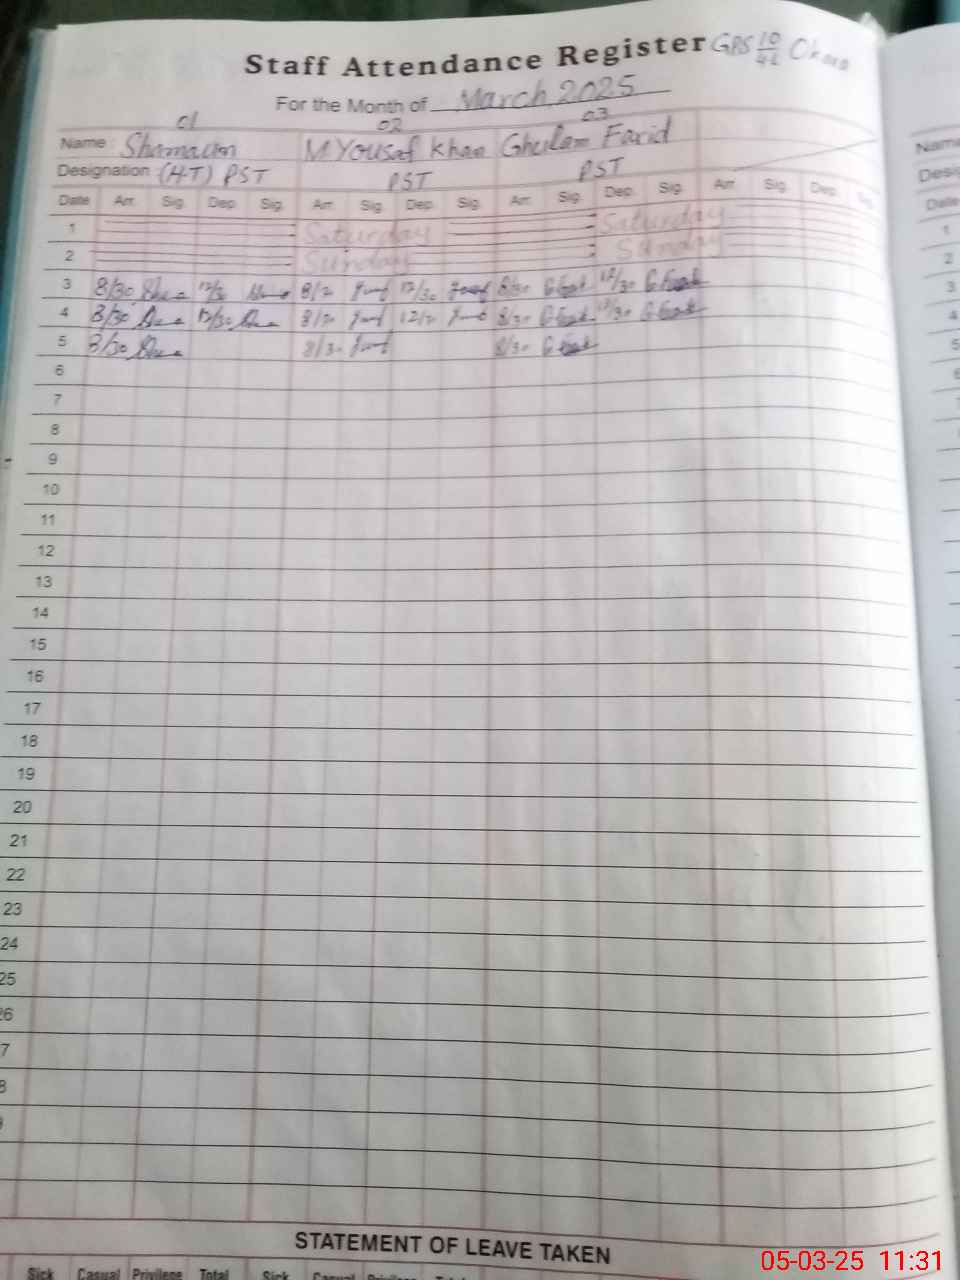 Staff Attendance Register GPS 10/4L Okara
For the Month of March, 2025
01 02 03
Name : Shamaun M Yousaf Khan Ghulam Farid
Designation (HT) PST PST PST
Date Arr. Sig. Dep. Sig. Arr. Sig. Dep. Sig. Arr. Sig. Dep. Sig. Arr. Sig. Dep. Sig.
1 Saturday Saturday
2 Sunday Sunday
3 8/30 12/30 12/30 8/30 12/30
4 8/30 12/30 8/30 12/30
5 8/30 8/30 8/30
6
7
8
9
10
11
12
13
14
15
16
17
18
19
20
21
22
23
24
25
26
7
8
9
STATEMENT OF LEAVE TAKEN
Sick Casual Privilege Total Sick Casual Privilege Total
05-03-25 11:31
Name
Desig
Date
1
2
3
4
5
6